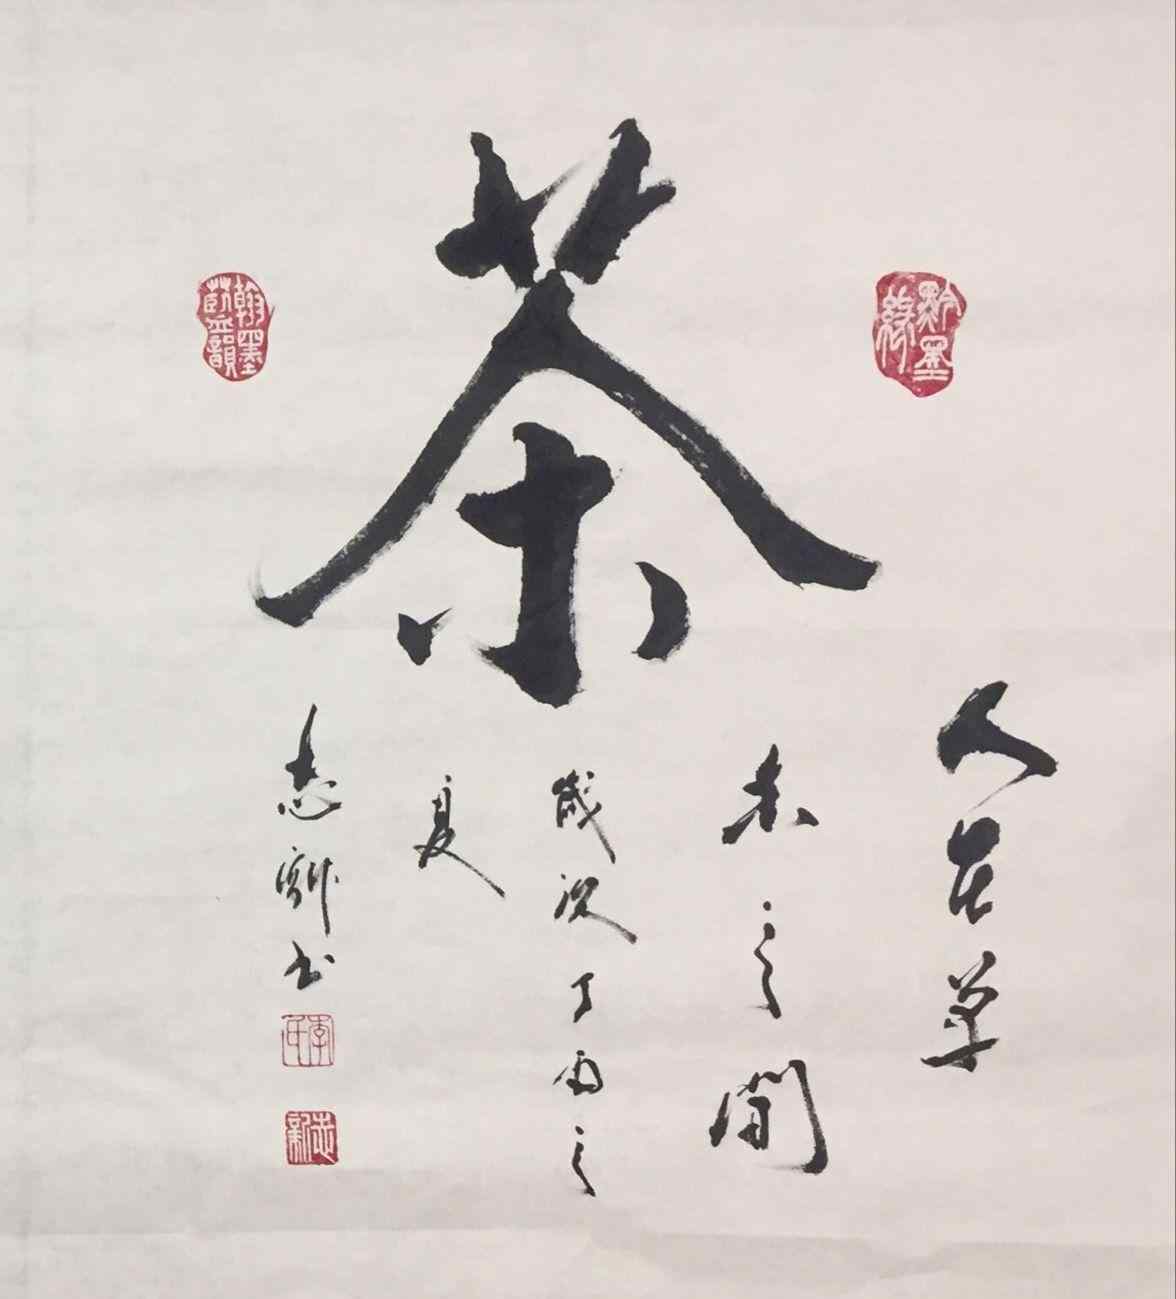 茶
人在草
木之間
歲次丁酉之
夏
志新书
翰墨
韻
墨緣
李氏
志新